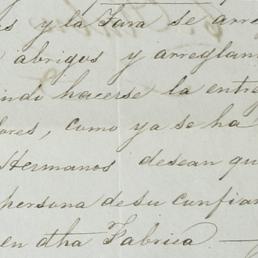 s y la Tara se arre
abrigos y arreglan
indi hacerse la entre
lores, como ya se ha
Hermanos desean qu
persona de su confian
en dha Fabrica. —